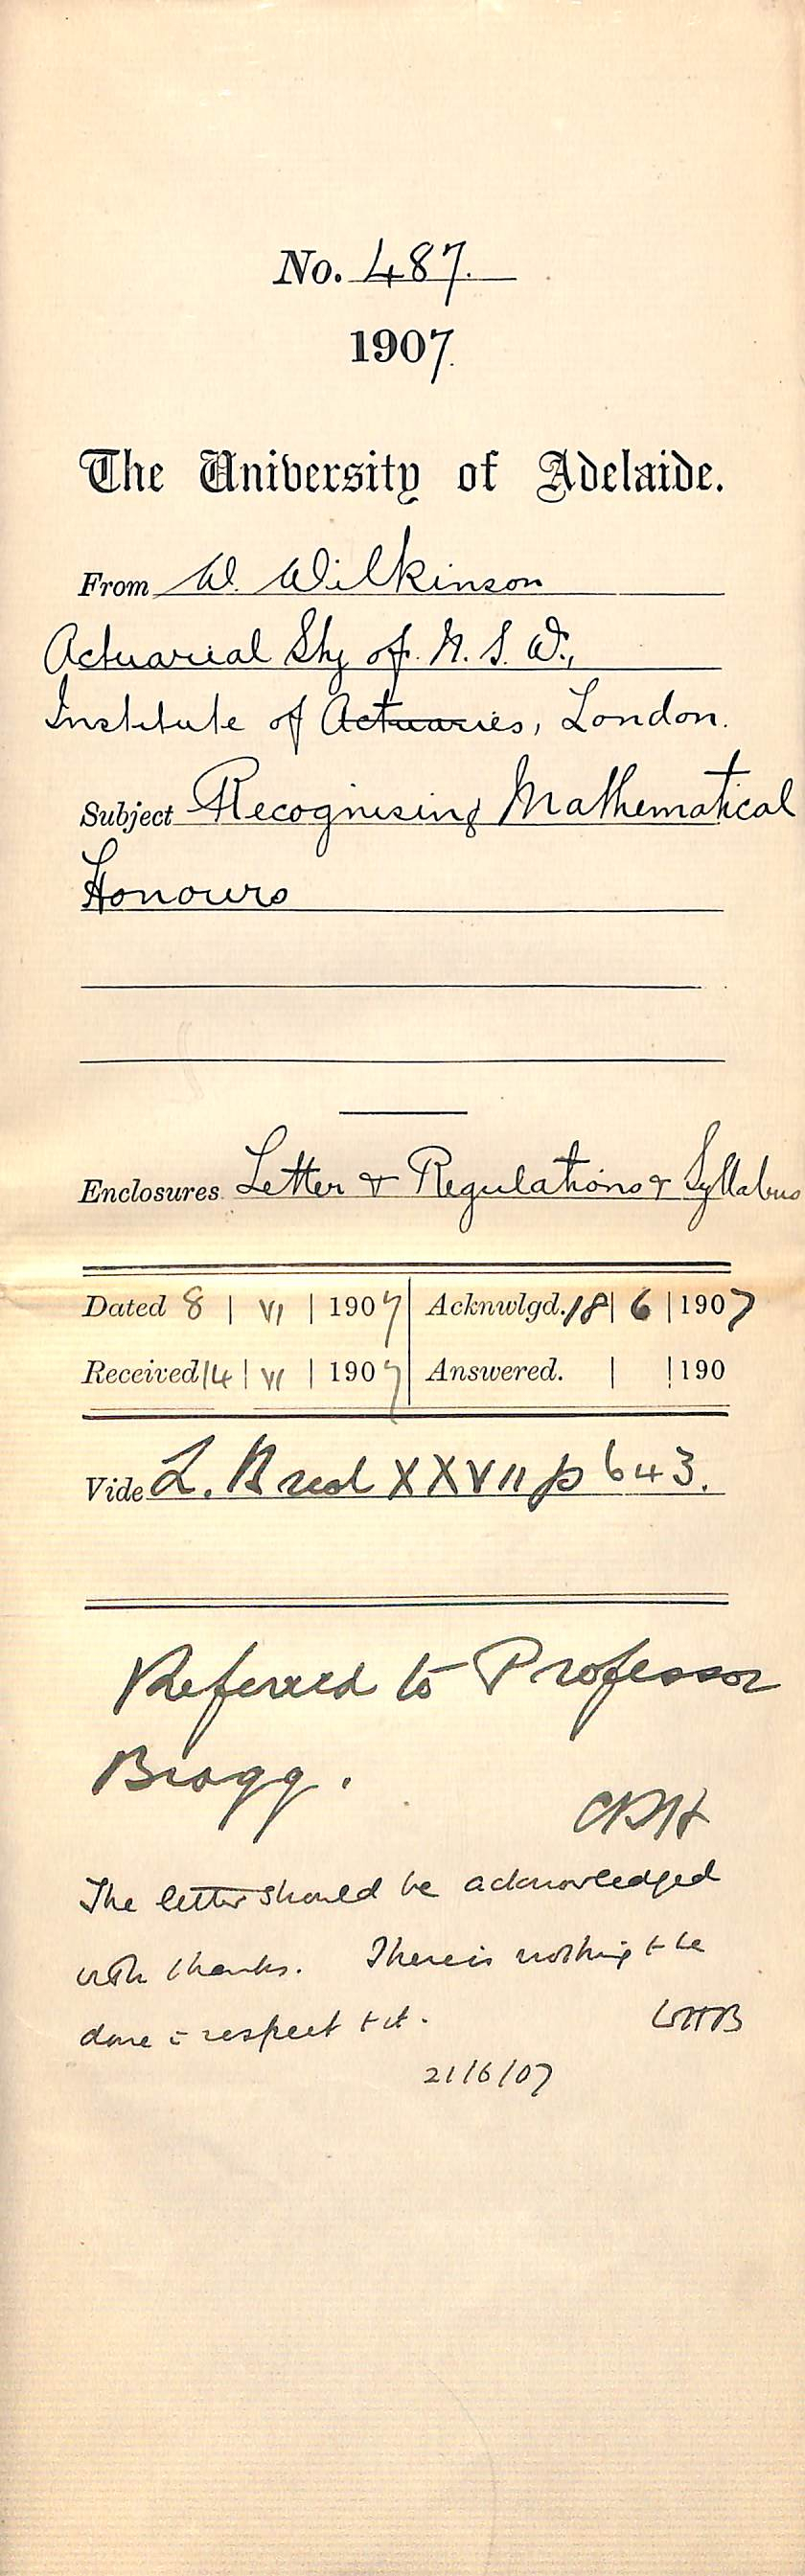 No. 487.
1907.
The University of Adelaide.
From W. Wilkinson
Actuarial Sty of N. S. W.,
Institute of Actuaries, London.
Subject Recognising Mathematical
Honours
Enclosures Letter & Regulations & Syllabus
Dated 8 | VI | 1907 Acknwlgd. 18 | 6 | 1907
Received 14 | VI | 1907 Answered. | | 190
Vide L. XXVII p 643.
Referred to Professor
Bragg.
The letter should be acknowledged
with thanks. There is nothing to be
done in respect to it. WHB
21/6/07